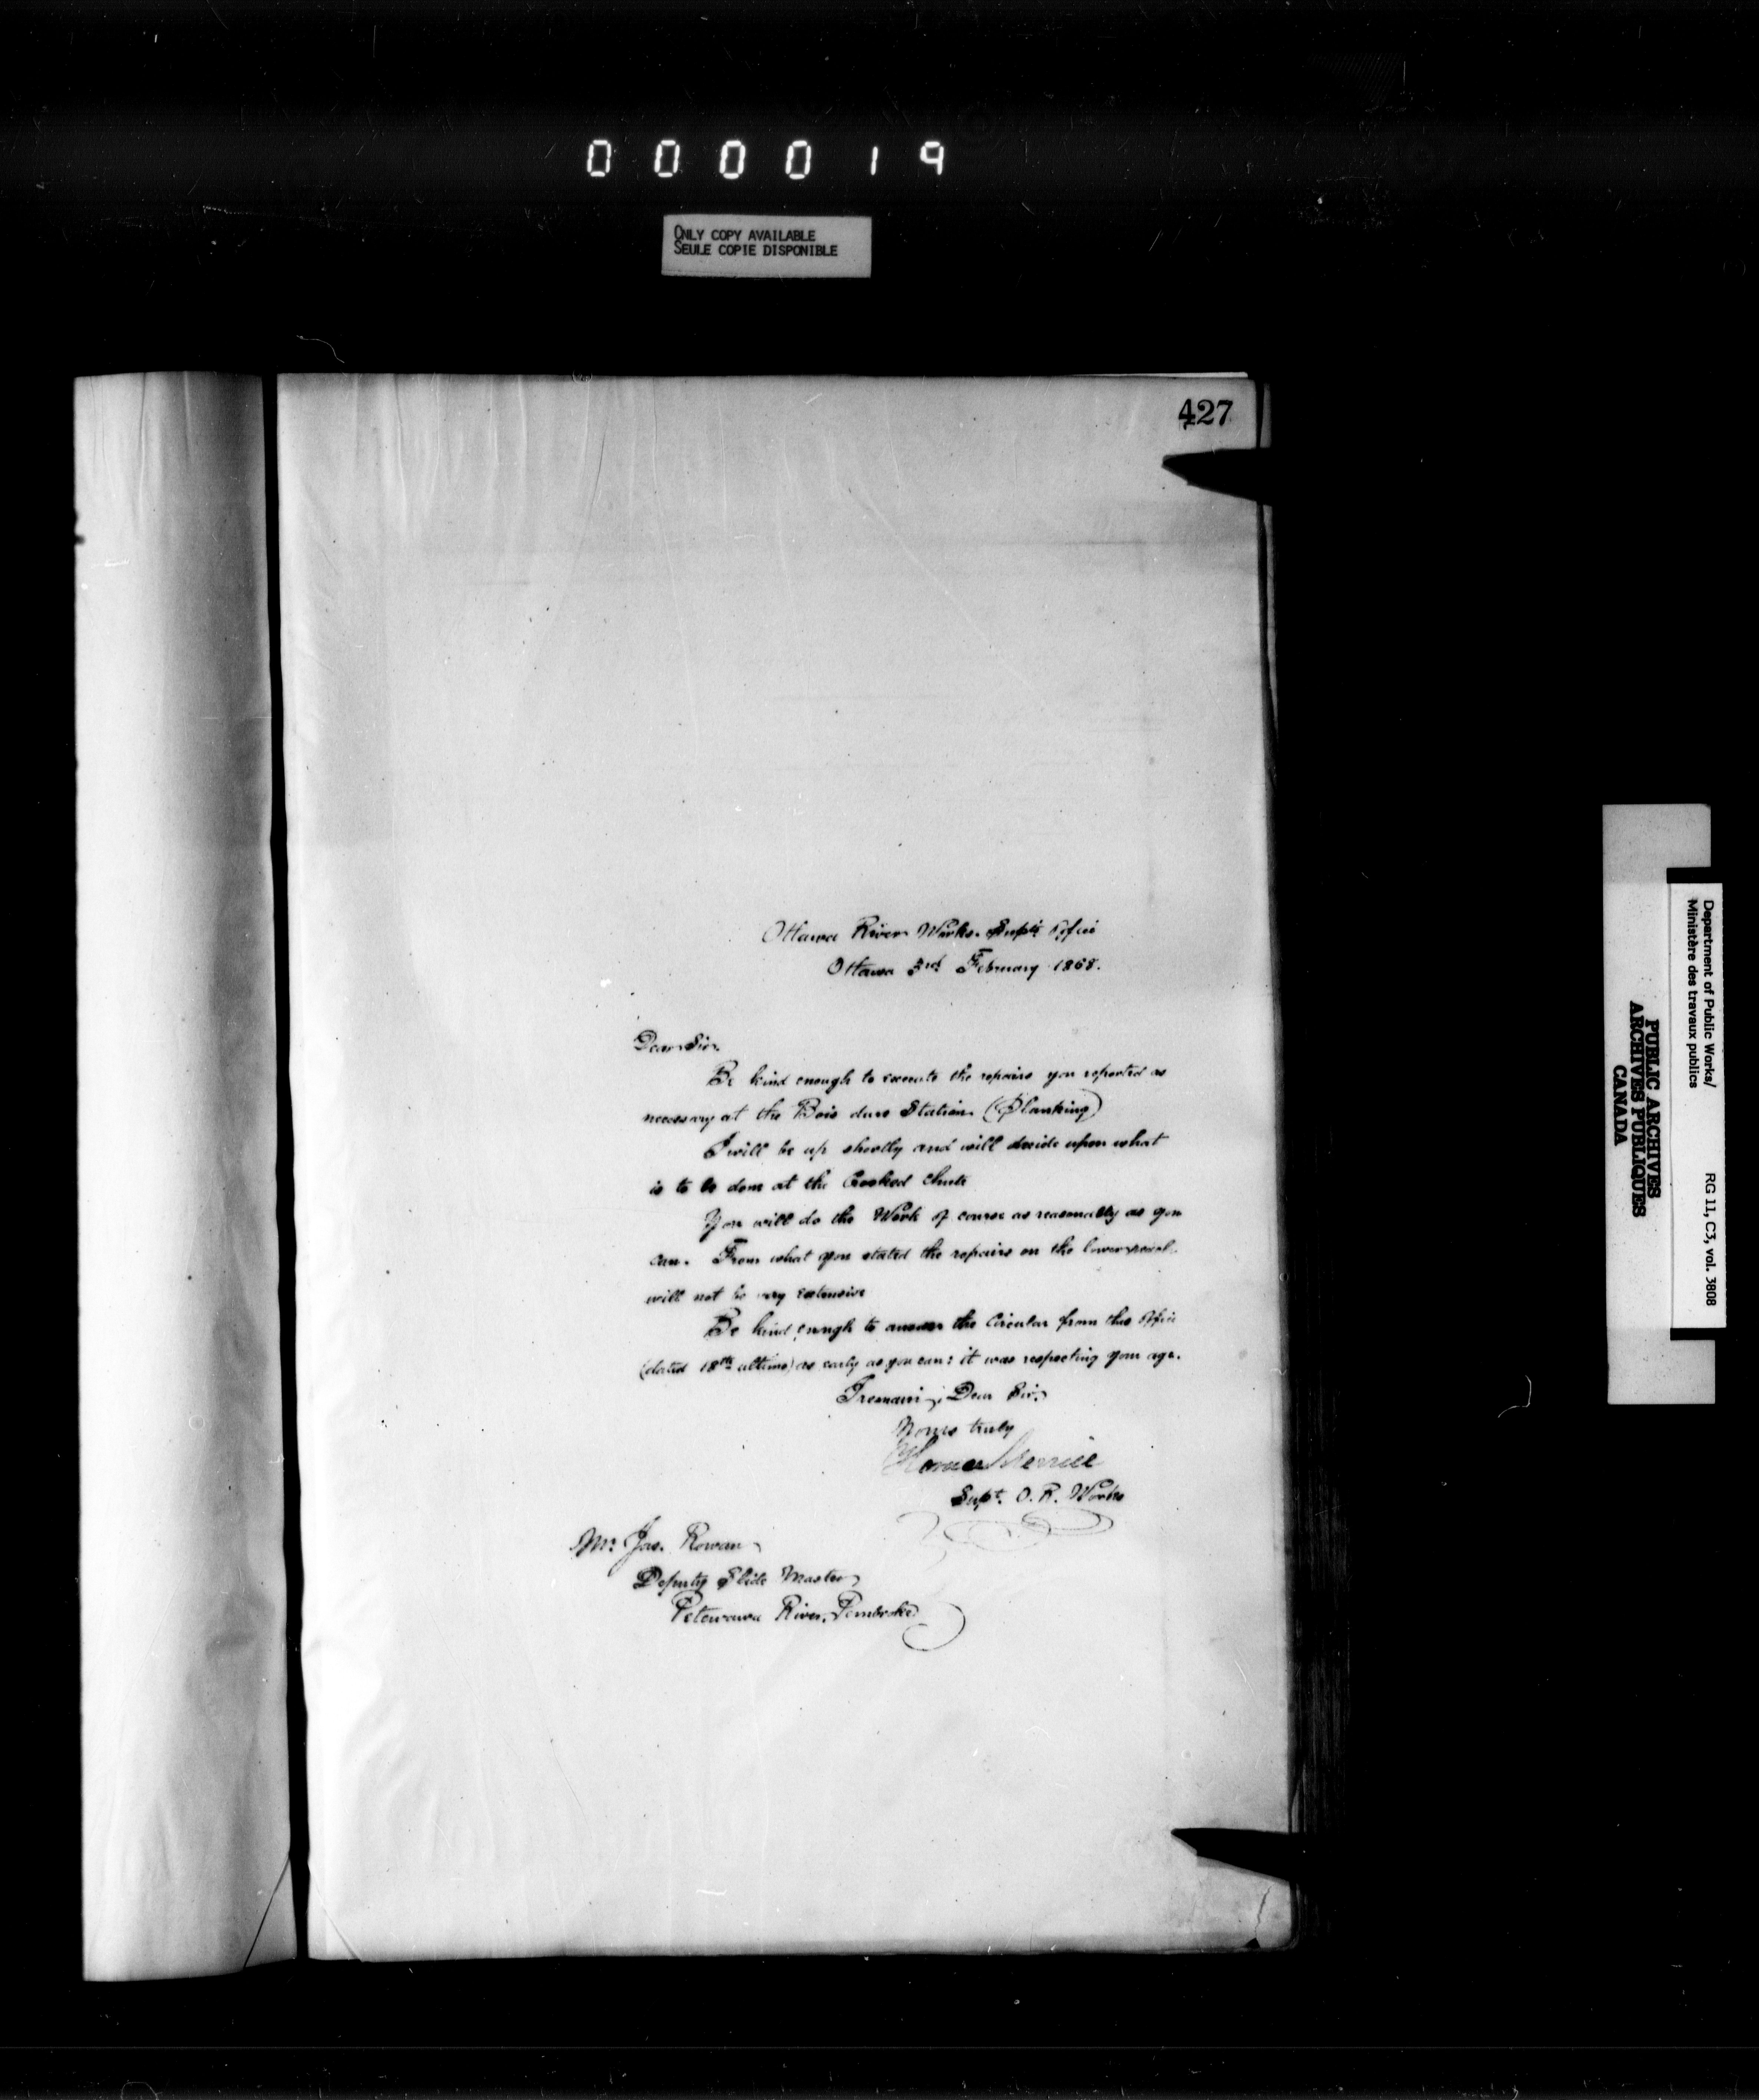 000019
ONLY COPY AVAILABLE
SEULE COPIE DISPONIBLE
427
Ottawa River Works. Supts Office
Ottawa 3rd February 1868.
Dear Sir,
Be kind enough to execute the repairs you reported as
necessary at the Bois durs Station (Planking)
I will be up shortly and will decide upon what
is to be done at the Crooked Chute
You will do the Work of course as reasonably as you
can. From what you stated the repairs on the lower
will not be very extensive
Be kind enough to answer the Circular from this Office
(dated 18th ultimo) as early as you can: it was respecting your age.
I remain, Dear Sir,
Yours truly
Horace Merrill
Supt. O. R. Works
Mr Jas. Rowan
Deputy Slide Master
Petewawa River, Pembroke
Department of Public Works/
Ministère des travaux publics
RG 11, C3, vol. 3808
PUBLIC ARCHIVES
ARCHIVES PUBLIQUES
CANADA